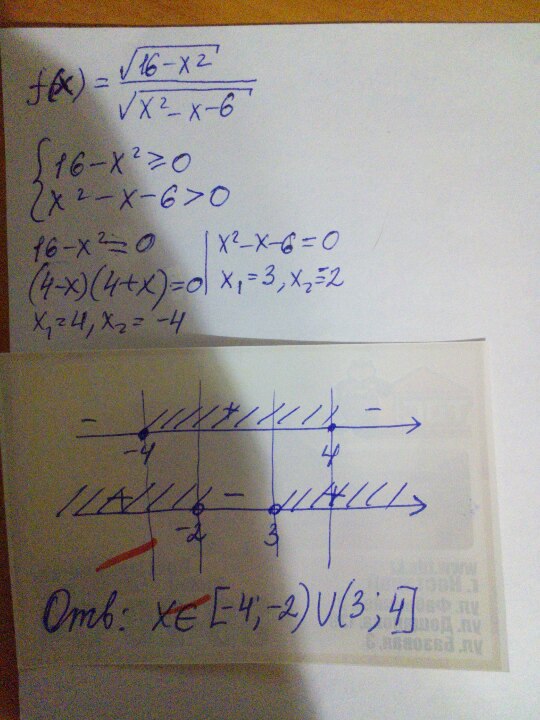 f(x) = √(16-x²) / √(x²-x-6)
{ 16-x² ≥ 0
x² - x - 6 > 0
16-x² = 0 | x²-x-6 = 0
(4-x)(4+x)=0 | x₁=3, x₂=-2
x₁=4, x₂= -4
- + -
-4 4
+ - +
-2 3
Отв: x∈ [-4;-2) ∪ (3; 4]
www
ул. Базовая